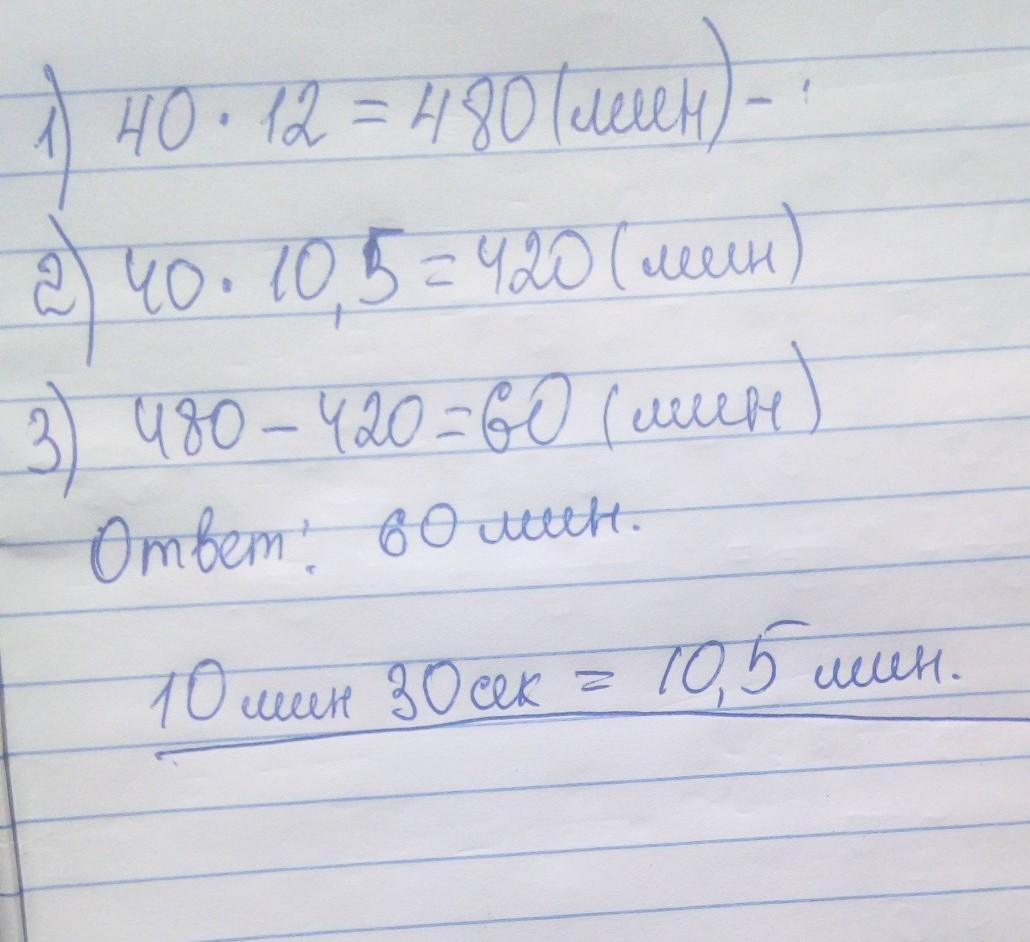 1) 40 · 12 = 480 (мин) -
2) 40 · 10,5 = 420 (мин)
3) 480 - 420 = 60 (мин)
Ответ: 60 мин.
10 мин 30 сек = 10,5 мин.